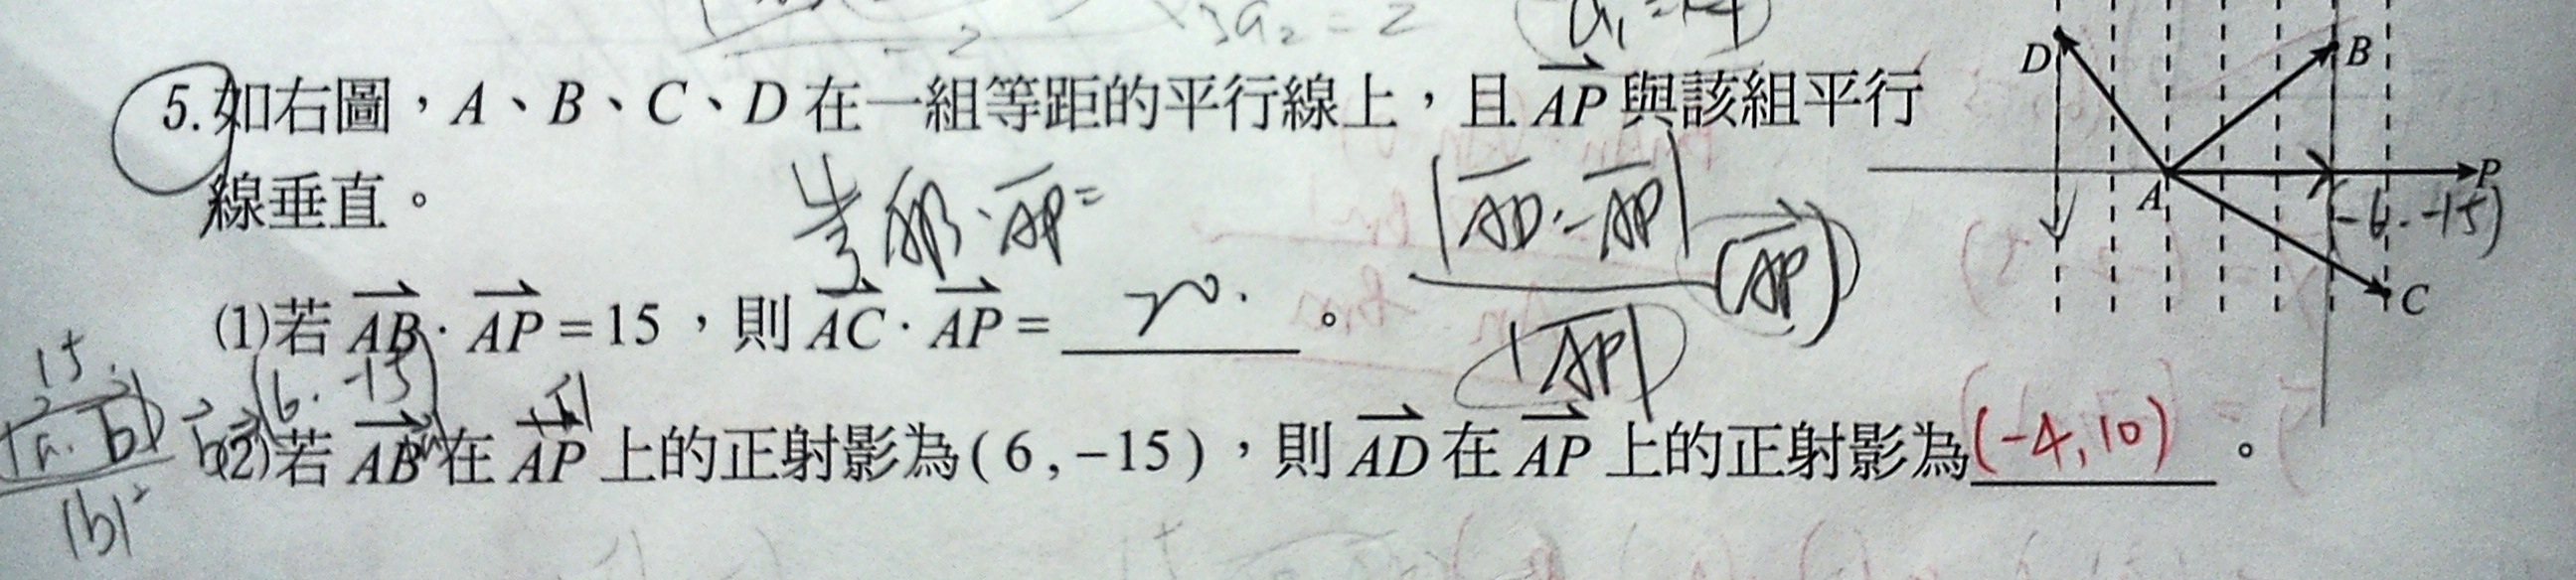 3a₂ = 2
a₁ = 14
5. 如右圖，A、B、C、D 在一組等距的平行線上，且 AP 與該組平行
線垂直。
AB · AP =
|AD · AP|
|AP|
(AP)
(1)若 AB · AP = 15，則 AC · AP = 20. 。
15
(6. -15)
|a · b|
|b|²
b
(2)若 AB 在 AP 上的正射影為 ( 6 , −15 )，則 AD 在 AP 上的正射影為 (-4, 10) 。
D
B
A
P
(-6. -15)
C